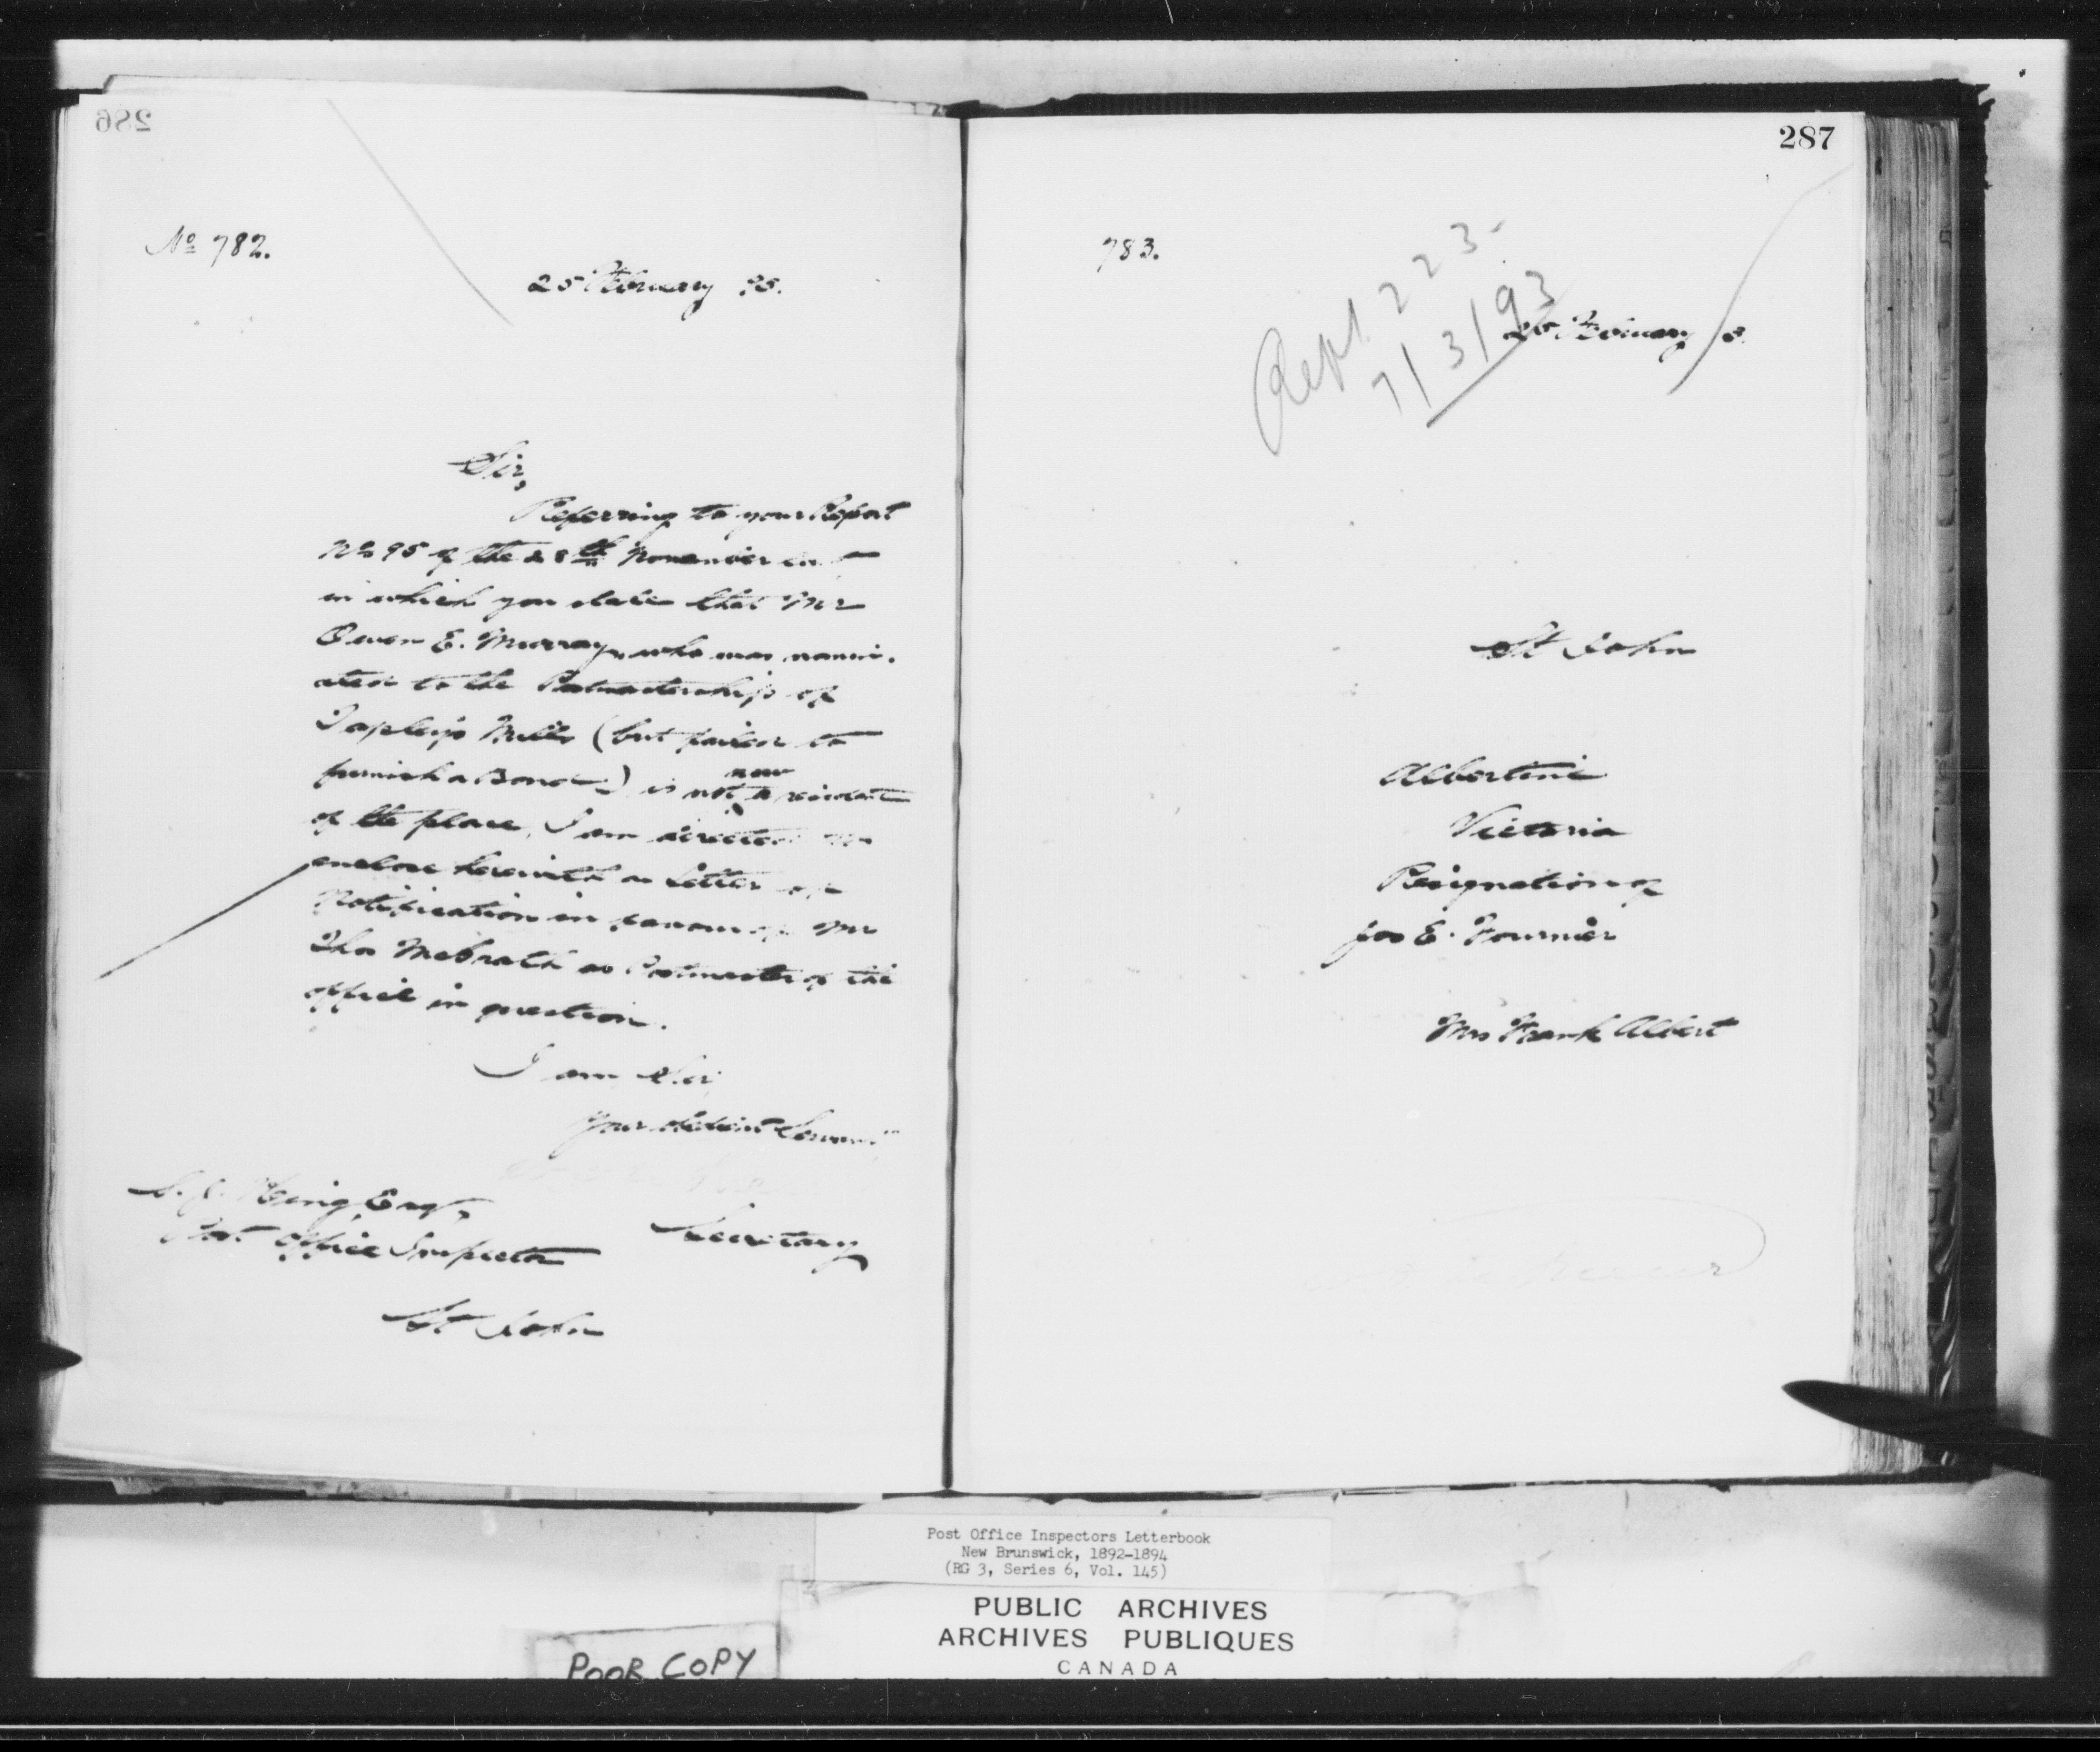 286
No 782.
25 February 93.
Sir,
Referring to your Report
No 95 of the 28th November last
in which you state that Mr
Owen E. Murray, who was nomin-
ated to the Postmastership of
Tapley's Mills (but failed to
furnish a Bond) is not now a resident
of the place, I am directed to
enclose herewith a Letter of
Notification in favour of Mr
Thos McGrath as Postmaster of the
office in question.
I am Sir,
Your obedient Servant,
Secretary
S. J. King Esqr,
Post Office Inspector
St John
287
783.
Rept 223
7/3/93
25 February 3.
St John
Albertine
Victoria
Resignation of
Jos E. Fournier
Mrs Frank Albert
Post Office Inspectors Letterbook
New Brunswick, 1892-1894
(RG 3, Series 6, Vol. 145)
PUBLIC ARCHIVES
ARCHIVES PUBLIQUES
CANADA
POOR COPY